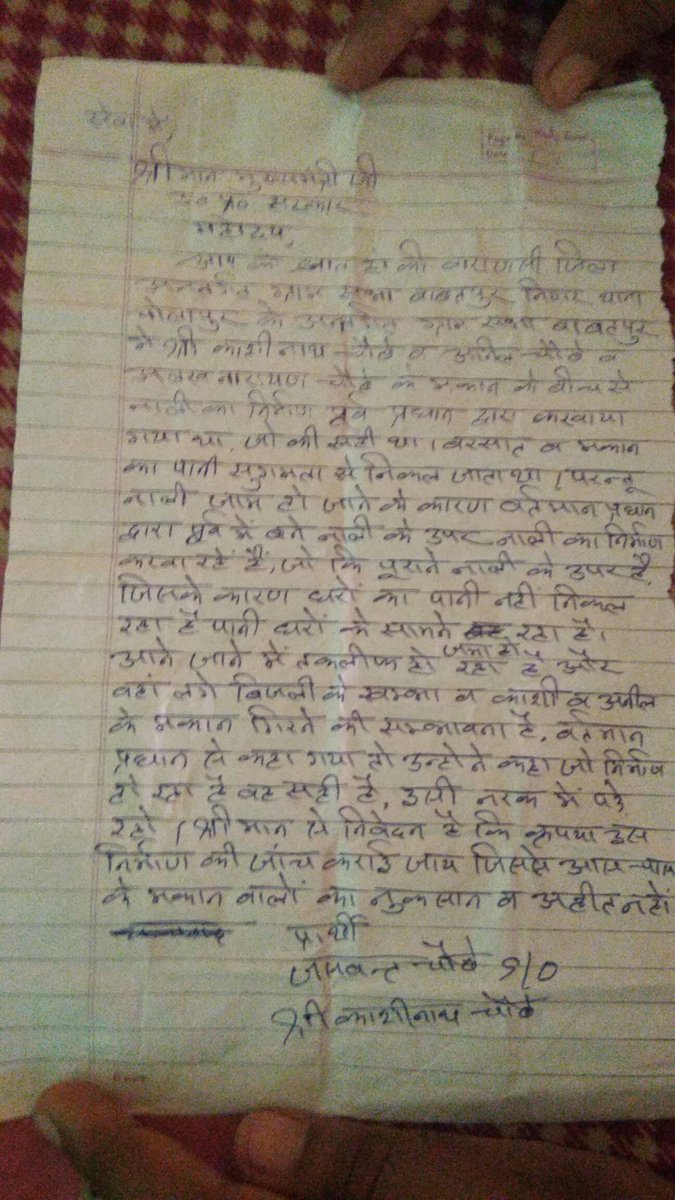 सेवा में,
श्री मान मुख्यमंत्री जी
उ० प्र० सरकार
महोदय,
आप को ज्ञात हो की वाराणसी जिला
अन्तर्गत ग्राम सभा बाबतपुर निकट थाना
के अन्तर्गत ग्राम सभा बाबतपुर
मे श्री काशी नाथ चौबे व अनिल चौबे व
अलख नारायण चौबे के मकान के बीच से
नाली का निर्माण पूर्व प्रधान द्वारा करवाया
गया था, जो की सही था। बरसात व मकान
का पानी सुगमता से निकल जाता था। परन्तू
नाली जाम हो जाने के कारण वर्तमान प्रधान
द्वारा पूर्व में बने नाली के उपर नाली का निर्माण
करवा रहें हैं, जो कि पूराने नाली के उपर है,
जिसके कारण घरों का पानी नहीं निकल
रहा है पानी घरों के सामने जमा हो रहा है।
आने जाने में तकलीफ हो रहा है और
वहां लगे बिजली के खम्भा व काशी व अनील
के मकान गिरने की सम्भावना है, वर्तमान
प्रधान से कहा गया तो उन्होने कहा जो निर्माण
हो रहा है वह सही है, इसी नरक में पड़े
रहो। श्री मान से निवेदन है कि कृपया इस
निर्माण की जांच कराई जाय जिससे आस-पास
के मकान वालों का नुकसान व अहीत न हो
प्रार्थी
चौबे S/O
श्री काशीनाथ चौबे